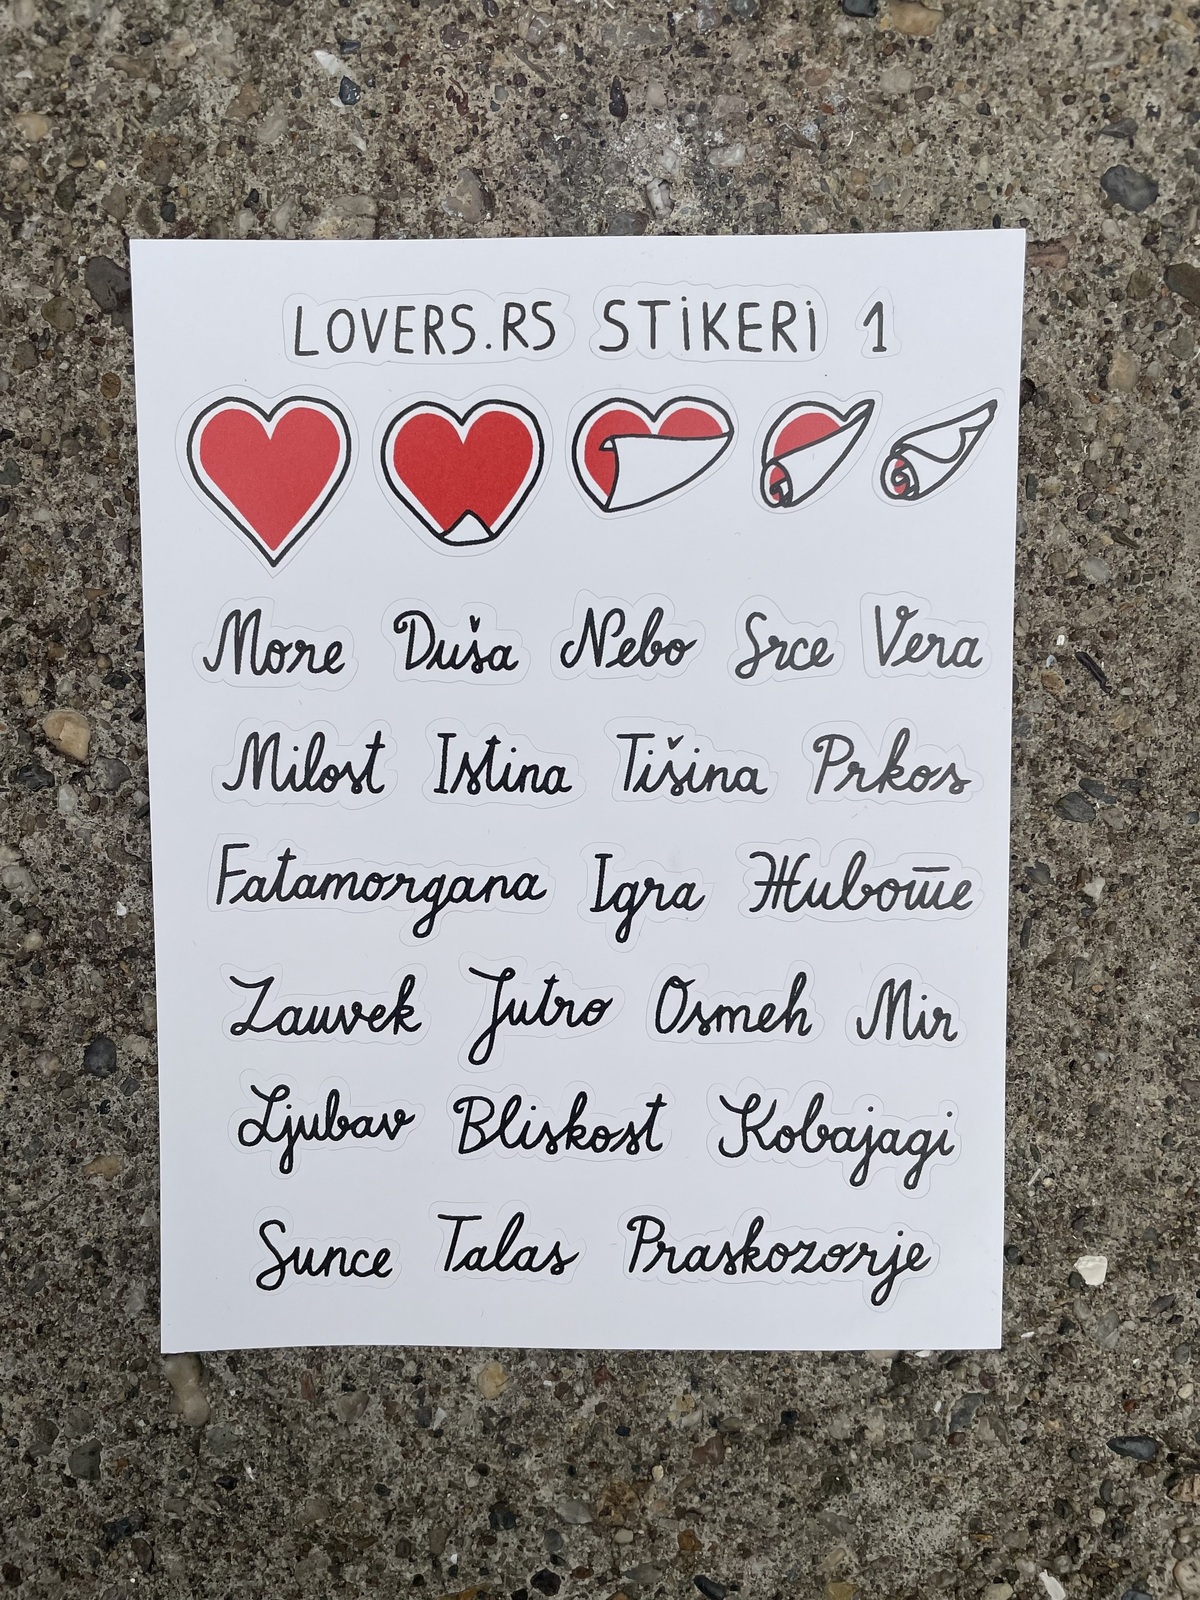 LOVERS.RS STiKERi 1
More Duša Nebo Srce Vera
Milost Istina Tišina Prkos
Fatamorgana Igra Животе
Zauvek Jutro Osmeh Mir
Ljubav Bliskost Kobajagi
Sunce Talas Praskozorje